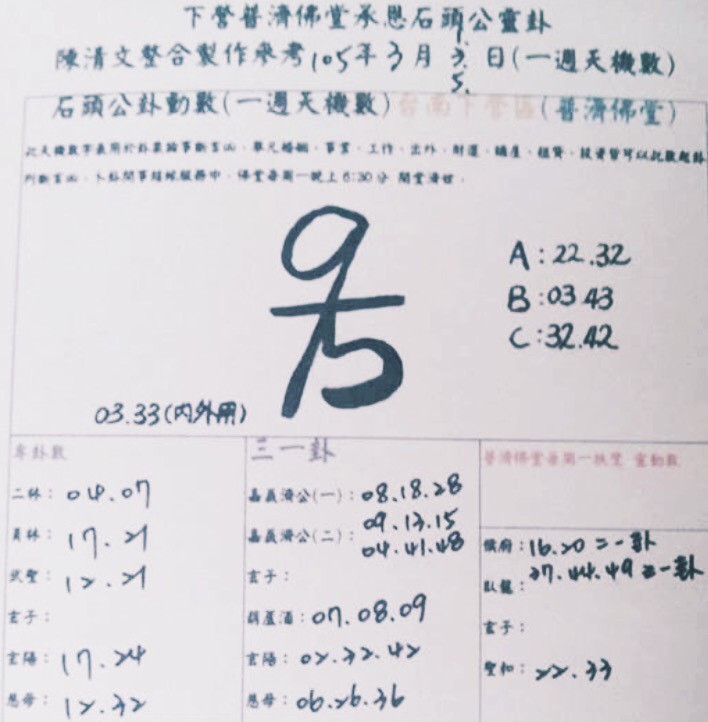 下營普濟佛堂承恩石頭公靈卦
陳清文整合製作參考105年3月3.5.日(一週天機數)
石頭公卦動數(一週天機數)台南下營區(普濟佛堂)
A:22.32
B:03.43
C:32.42
03.33(內外用)
專卦數
二林:04.07
員林:17.21
武聖:12.21
玄子:
玄陽:17.24
慈母:12.32
三一卦
嘉義濟公(一):08.18.28
嘉義濟公(二):09.13.15
04.41.48
玄子:
葫蘆酒:07.08.09
玄陽:02.32.42
慈母:06.26.36
普濟佛堂每週一扶鸞 靈動數
16.20二一卦
臥龍:27.44.49三一卦
玄子:
聖和:22.33